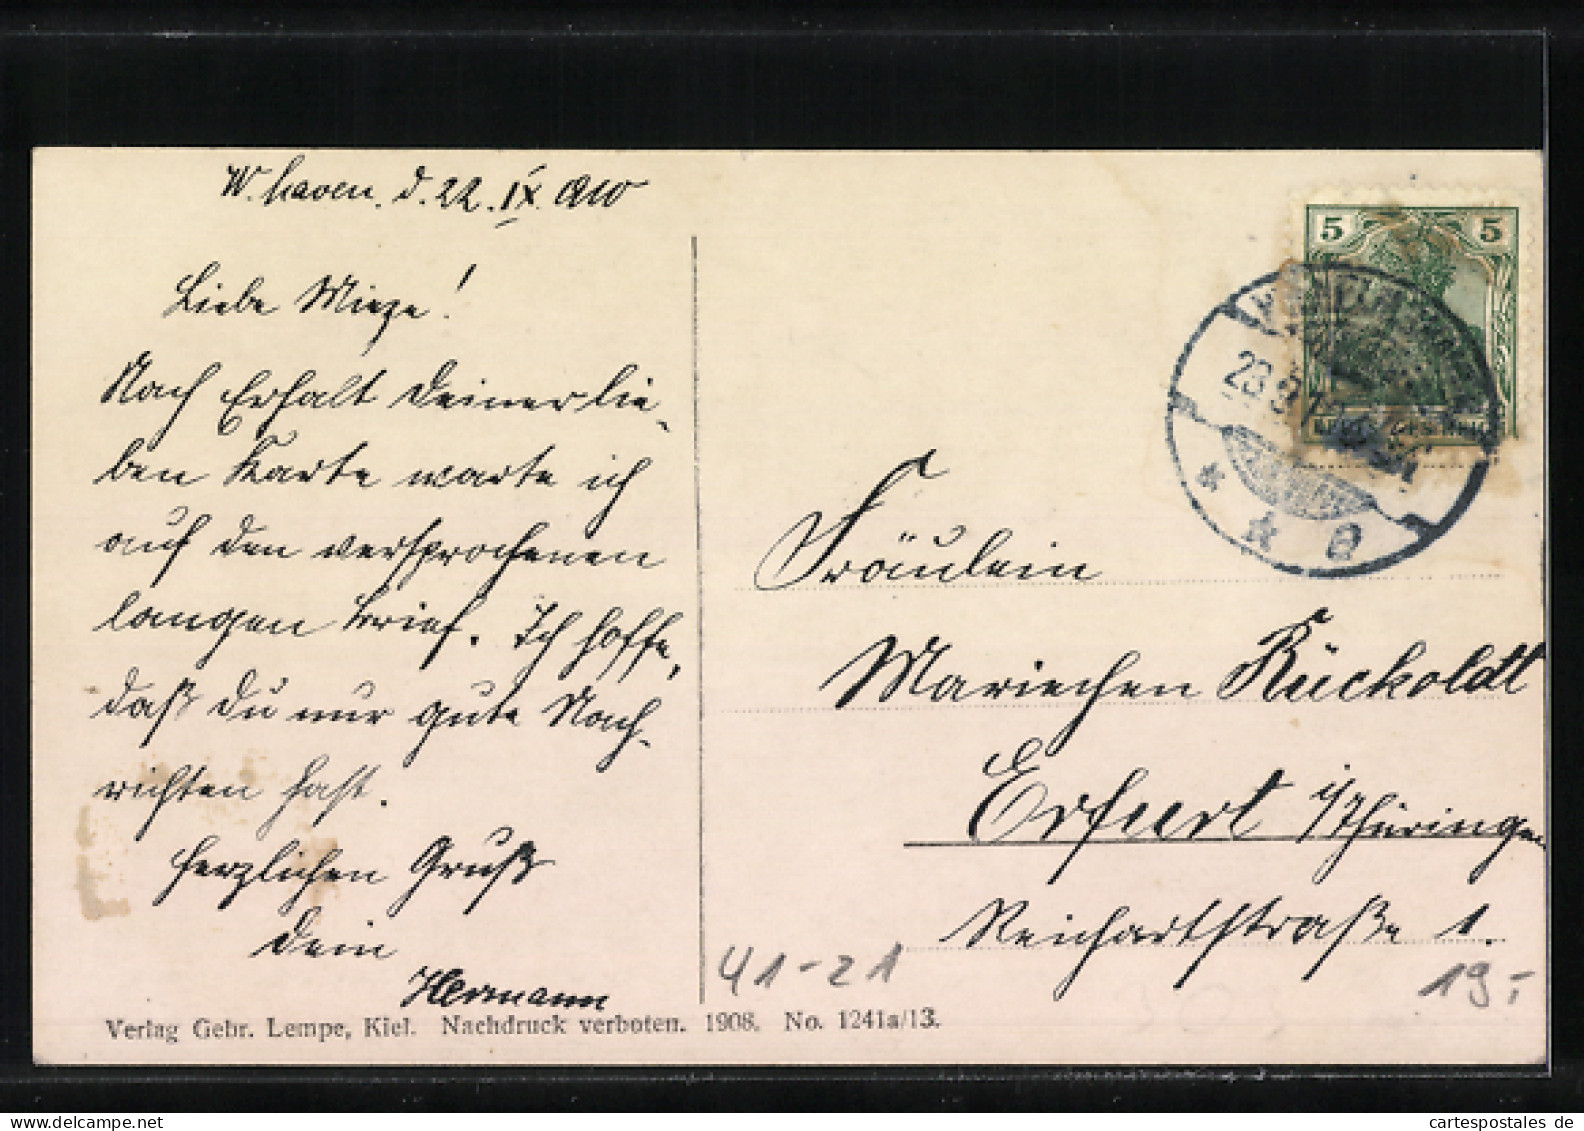 W.haven. d. 22. IX. 1910
Liebe Mieze!
Nach Erhalt Deiner lie-
ben Karte warte ich
auf den versprochenen
langen Brief. Ich hoffe,
daß Du nur gute Nach-
richten hast.
Herzlichen Gruß
Dein
Hermann
5 5
DEUTSCHES REICH
23.9.
* * a
Fräulein
Mariechen Rückoldt
Erfurt i/Thüringen
Reichartstraße 1.
41-21
19,-
Verlag Gebr. Lempe, Kiel. Nachdruck verboten. 1908. No. 1241a/13.
cartespostales de